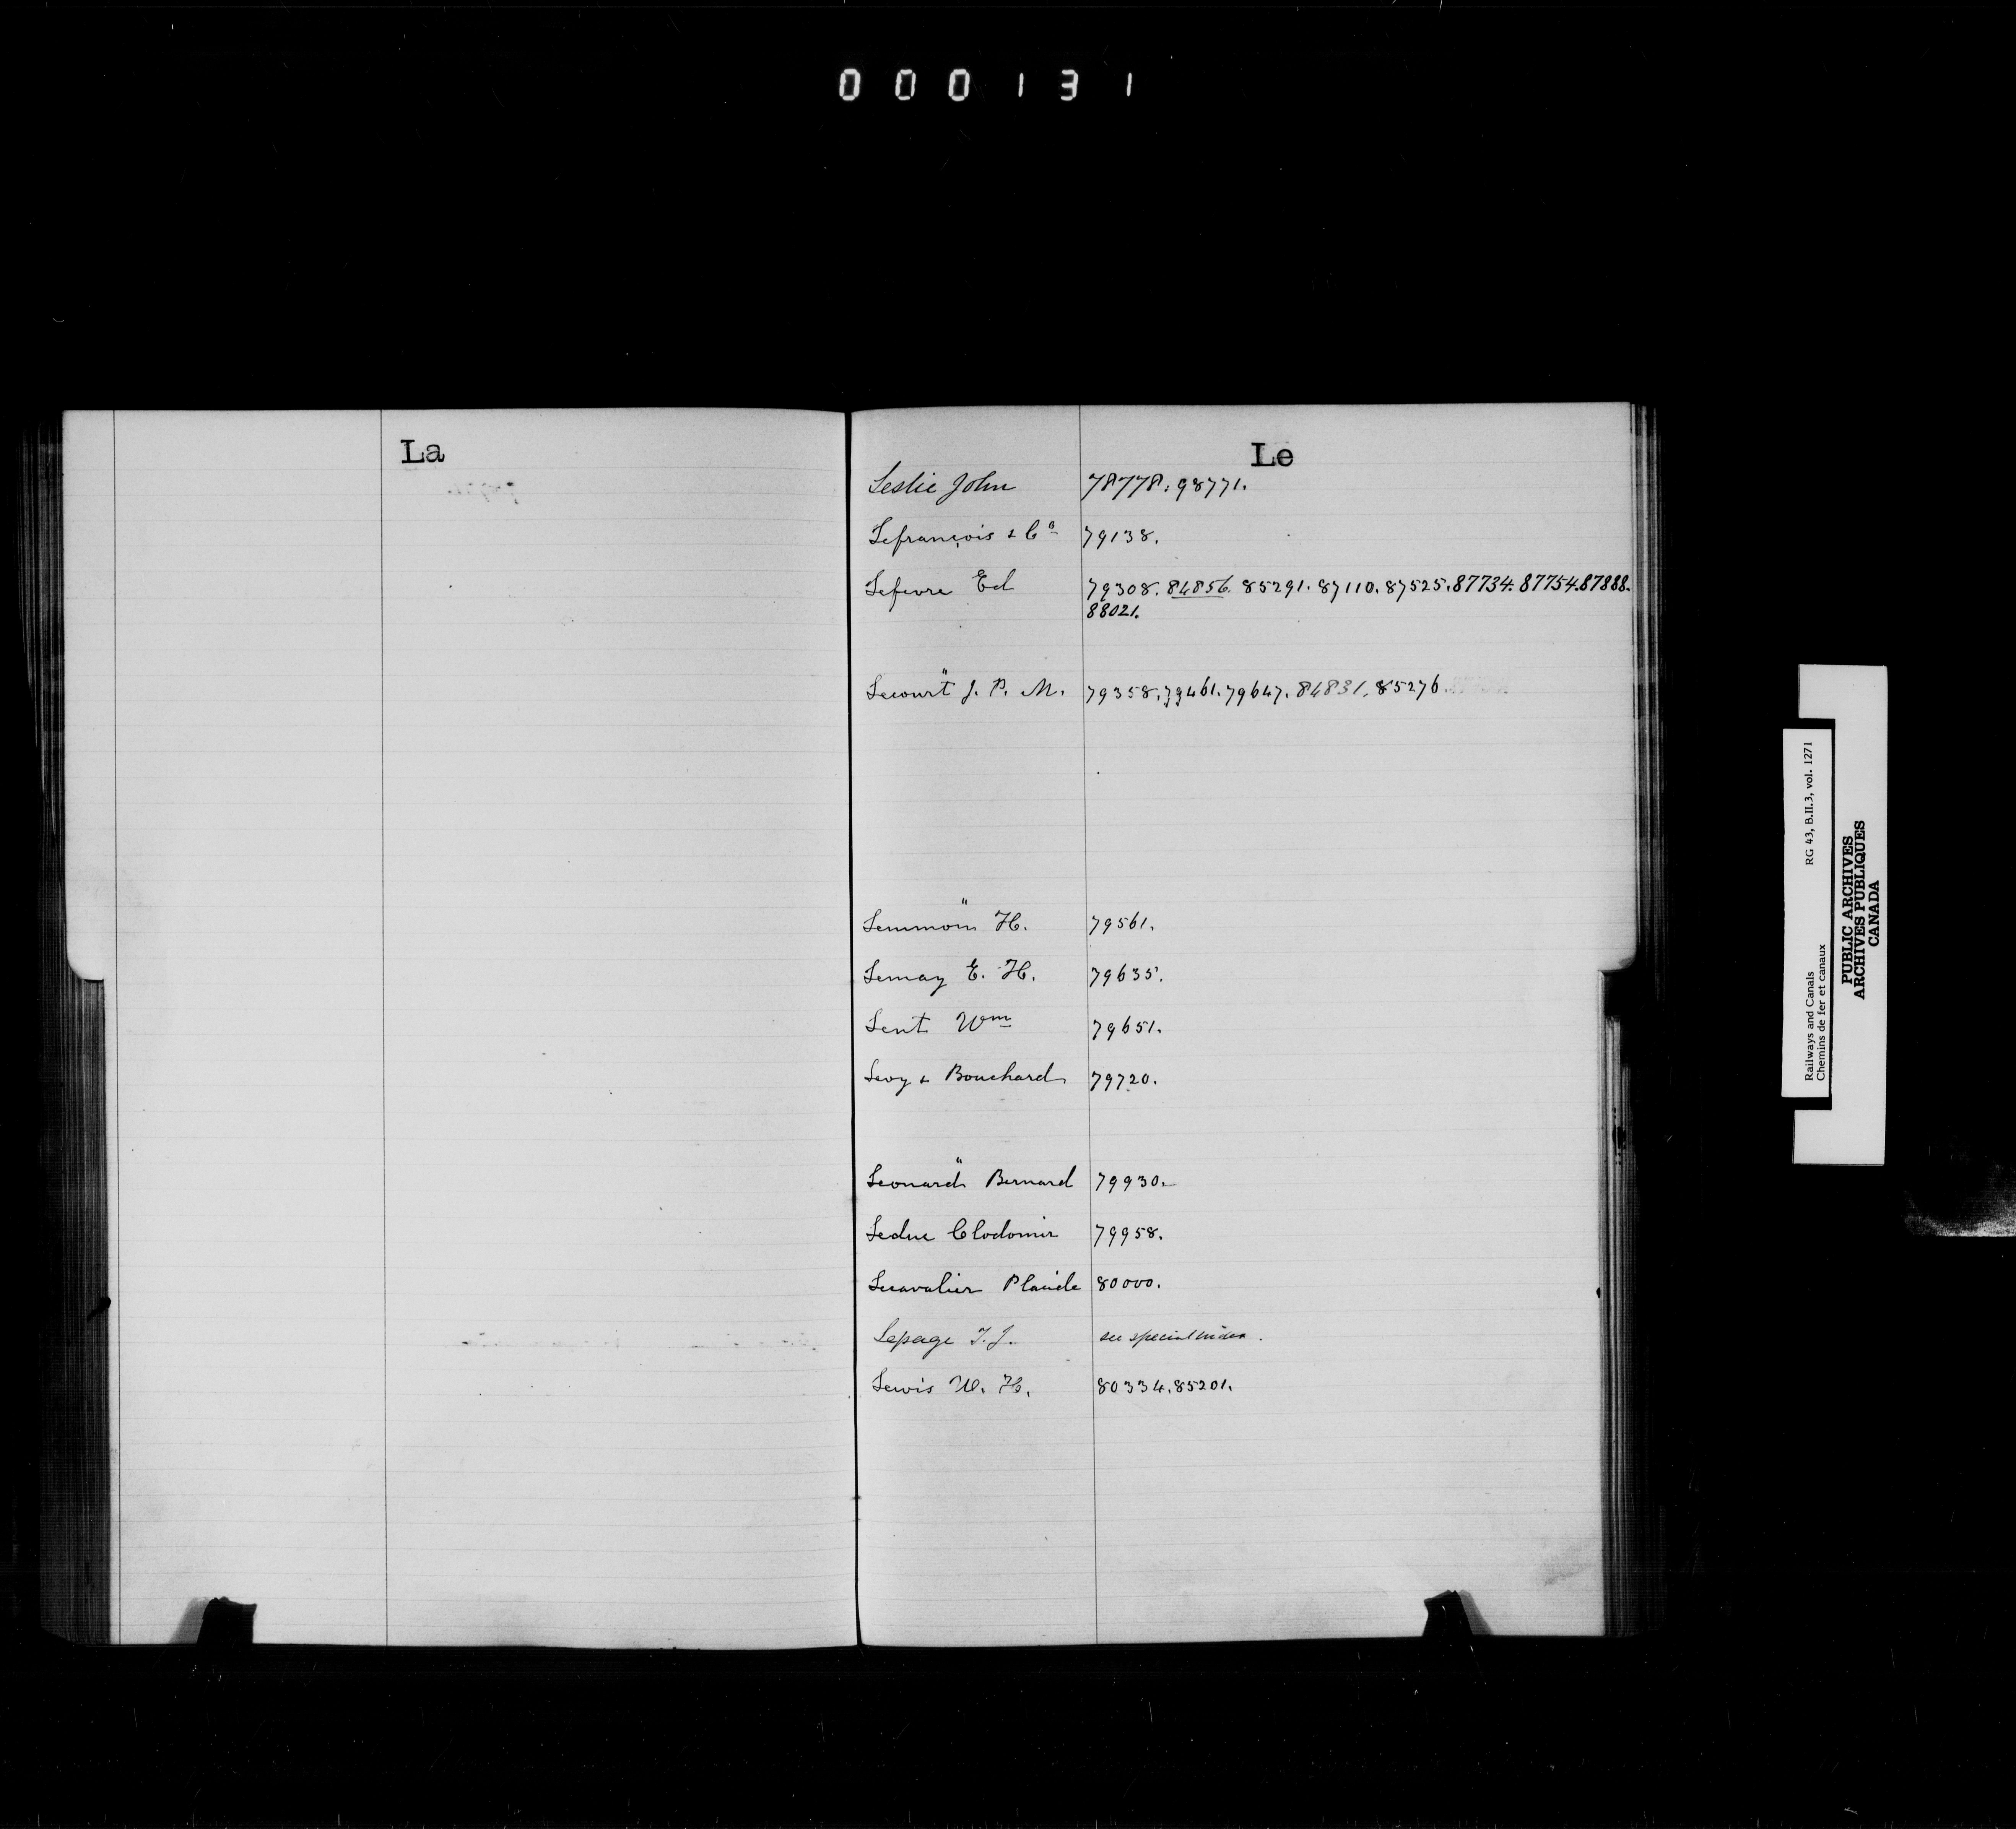 000131
La
Le
Leslie John 78778. 98771.
Lefrançois & Co 79138.
Lefevre Ed 79308. 84856. 85291. 87110. 87525. 87734. 87754. 87888.
88021.
Lecourt J. P. M. 79358. 79461. 79647. 84831. 85276.
Lemmon H. 79561.
Lemay E. H. 79635.
Lent Wm 79651.
Levy & Bouchard 79720.
Leonard Bernard 79930.
Leduc Clodomir 79958.
Lecavalier Placide 80000.
Lepage T. J. see special index.
Lewis W. H. 80334. 85201.
Railways and Canals RG 43, B.II.3, vol. 1271
Chemins de fer et canaux
PUBLIC ARCHIVES
ARCHIVES PUBLIQUES
CANADA